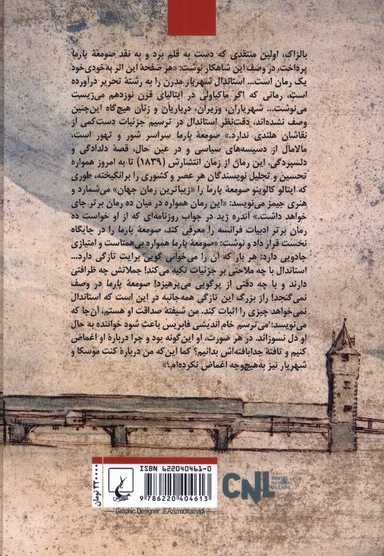 بالزاک، اولین منتقدی که دست به قلم برد و به نقد صومعهٔ پارما
پرداخت، در وصف این شاهکار نوشت: «هر صفحهٔ این اثر به‌خودی‌خود
یک رمان است... استاندال شهریار مدرن را به رشتهٔ تحریر درآورده
است، رمانی که اگر ماکیاولی در ایتالیای قرن نوزدهم می‌زیست
می‌نوشت... شهریاران، وزیران، درباریان و زنان هیچ‌گاه این‌چنین
وصف نشده‌اند، دقت‌نظر استاندال در ترسیم جزئیات دست‌کمی از
نقاشان هلندی ندارد.» صومعهٔ پارما سراسر شور و تهور است،
مالامال از دسیسه‌های سیاسی و در عین حال، قصهٔ دلدادگی و
دلسپردگی. این رمان از زمان انتشارش (۱۸۳۹) تا به امروز همواره
تحسین و تجلیل نویسندگان هر عصر و کشوری را برانگیخته، طوری
که ایتالو کالوینو صومعهٔ پارما را «زیباترین رمان جهان» می‌شمارد و
هنری جیمز می‌نویسد: «این رمان همواره در میان ده رمان برتر جای
خواهد داشت.» آندره ژید در جواب روزنامه‌ای که از او خواست ده
رمان برتر ادبیات فرانسه را معرفی کند، صومعهٔ پارما را در جایگاه
نخست قرار داد و نوشت: «صومعهٔ پارما همواره بی‌همتاست و امتیازی
جادویی دارد: هر بار که آن را می‌خوانی گویی برایت تازگی دارد...
استاندال با چه ملاحتی بر جزئیات تکیه می‌کند! جملاتش چه ظرافتی
دارند و با چه دقتی از پرگویی می‌پرهیزد! صومعهٔ پارما در وصف
نمی‌گنجد! راز بزرگ این تازگی همه‌جانبه در این است که استاندال
نمی‌خواهد چیزی را اثبات کند. من شیفتهٔ صداقت او هستم، آن‌جا که
می‌نویسد: می‌ترسم خام اندیشی فابریس باعث شود خواننده به حال
او دل نسوزاند. در هر صورت، او این‌گونه بود و چرا دربارهٔ او اغماض
کنیم و تافتهٔ جدابافته‌اش بدانیم؟ کما این‌که من دربارهٔ کنت موسکا و
شهریار نیز به‌هیچ‌وجه اغماض نکرده‌ام.»
ISBN 622040461-0
9 786220 404613
۲۲۰۰۰۰ تومان
CNL
Graphic Designer: Z.Azizmohamadi